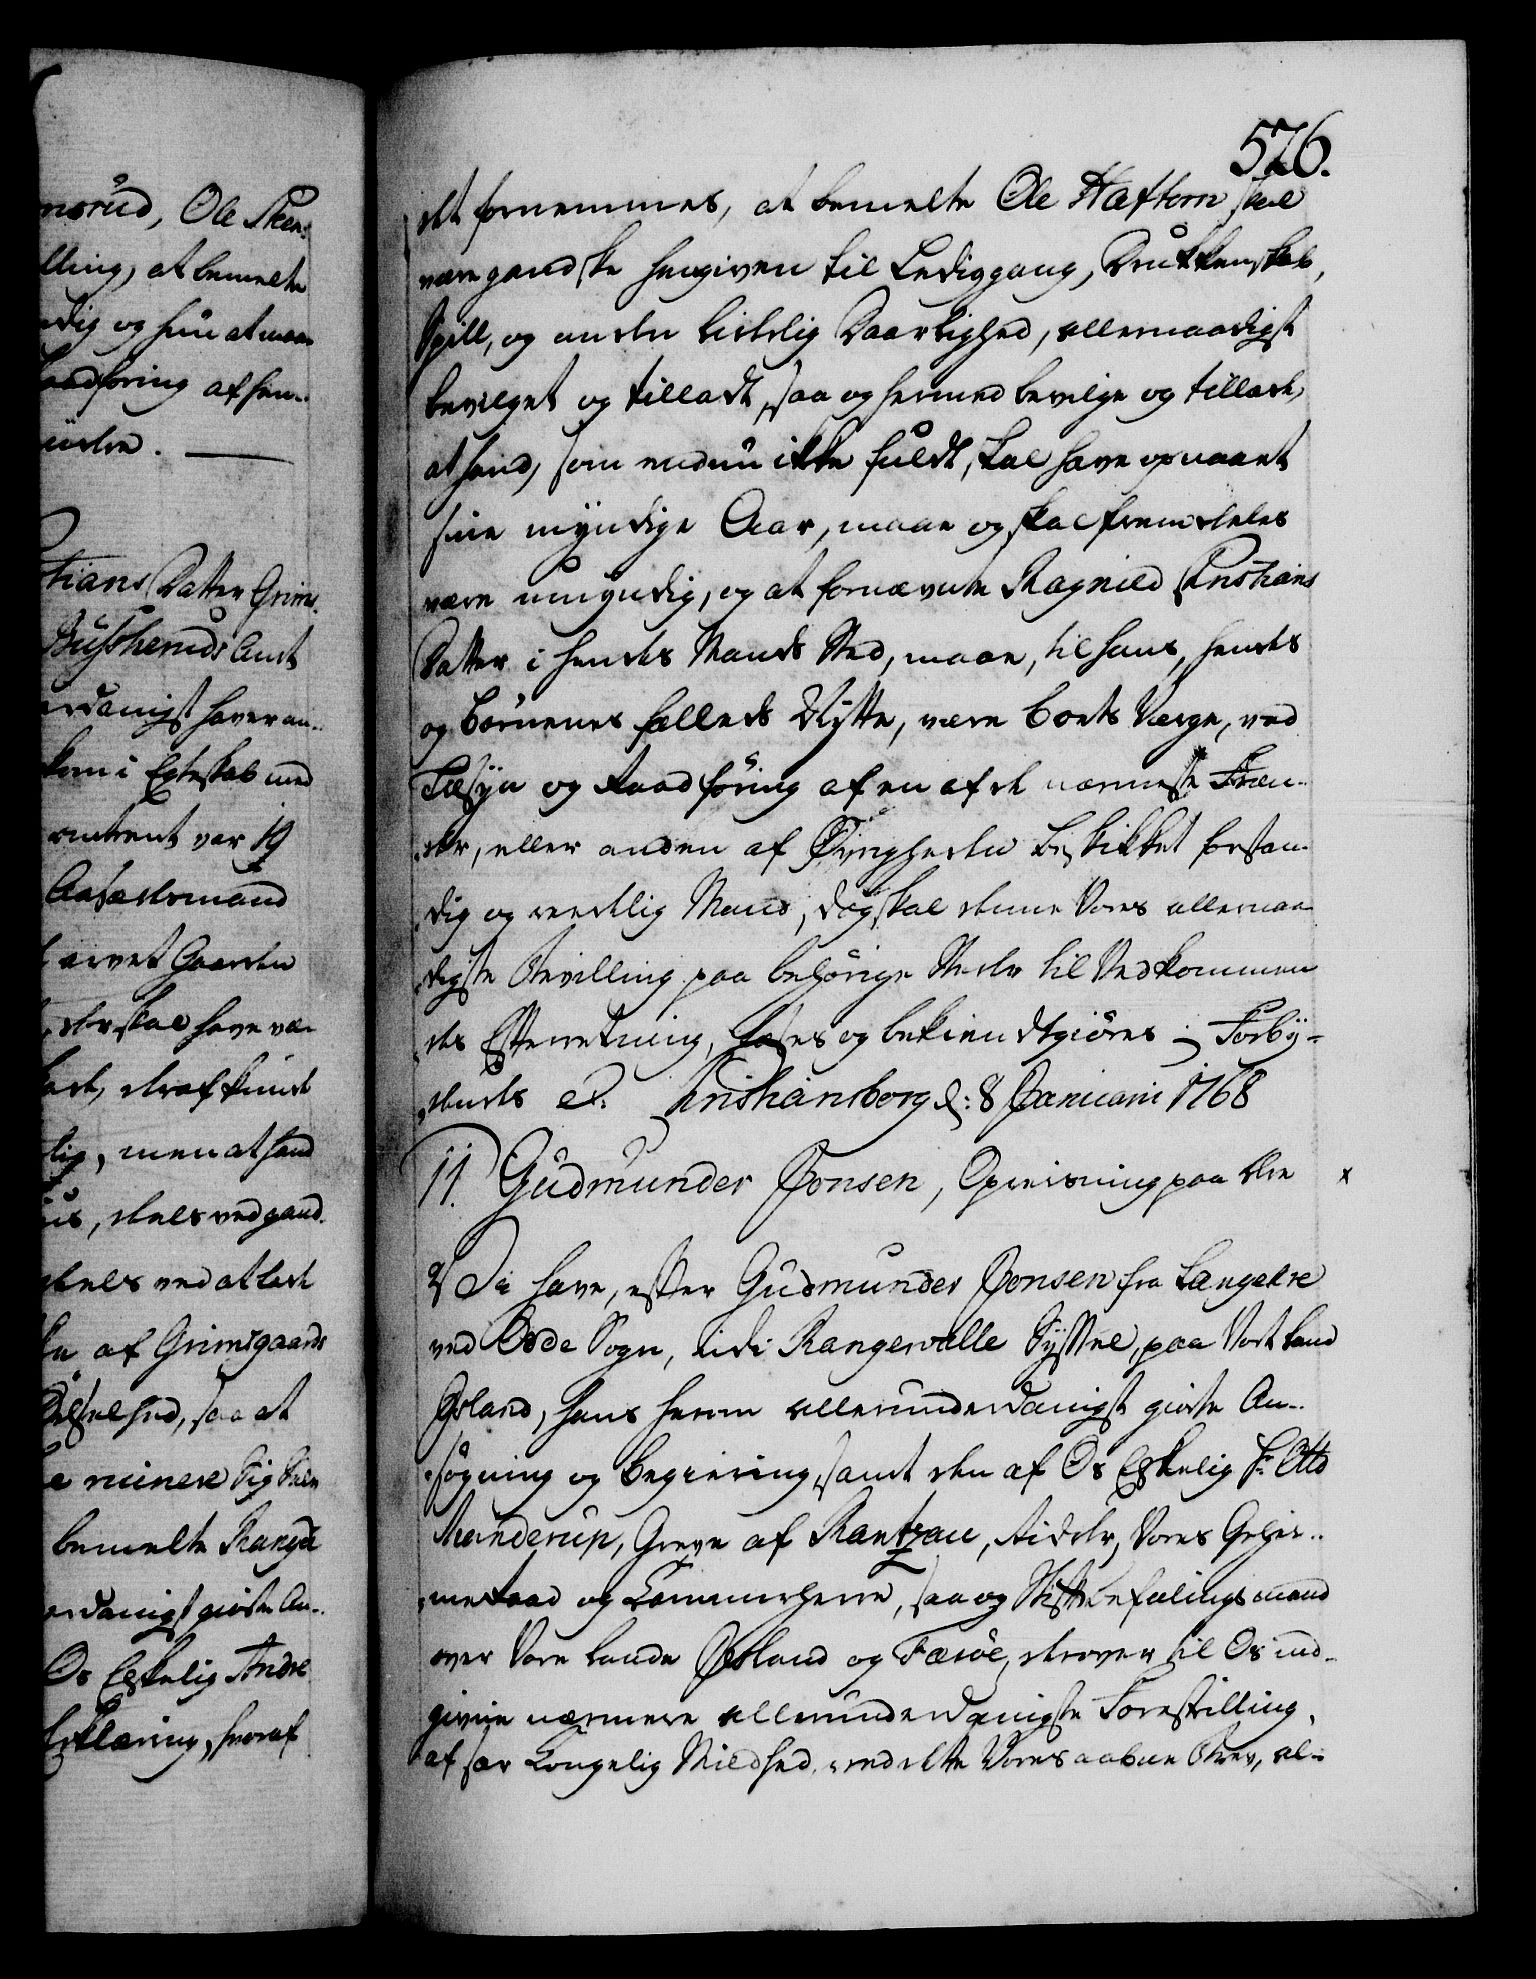 nsrud, Ole Sten-
lling, at bemelte
dig og hun at maa
aadføring af hen-
tians Datter Grims-
Busherruds Amt
erdanigst haver an-
kom i Egteskab med
omtrent var 19
Aasædesmand
arvet Gaarden
der skal have væ-
lig, men at hand
deels ved gand-
deels ved at lade
af Grimsgaards
hed, saa at
ruinere sig selv
bemelte Rangdi
erdanigst giorte An-
Os Elskelig Andre
Erklæring, hvoraf
576.
det fornemmes, at bemelte Ole Haftorn skal
være gandske hengiven til Lediggang, Drukkenskab,
Spill, og anden liderlig Daarlighed, allernaadigst
bevilget og tilladt, saa og hermed bevilge og tillade,
at hand, som endnu ikke fuldt, skal have opnaaet
sine myndige Aar, maae og skal fremdeles
være umyndig, og at fornævnte Ragnild Christians
Datter i hendes Mands Sted, maae, til hans, hendes
og Børnenes fælleds Nytte, være Boets Værge, ved
Tilsyn og Raadføring af en af de nærmeste Fræn-
der, eller anden af Øvrigheden beskikket forstan-
dig og redelig Mand; dog skal denne Vores allernaa-
digste Bevilling paa behørige Steder til Vedkommen-
des Efterretning, læses og bekiendtgiøres; Forby-
dendes &. Christiansborg d: 8 Januarii 1768
11. Gudmunder Jonsen, Opreisning paa Ære x
Vi have, efter Gudmunder Jonsen fra Langekre
ved Odde Sogn, udi Rangervalle Syssel, paa Vort Land
Island, hans herom allerunderdanigst giorte An-
søgning og Begiering, samt den af Os Elskelig Hr Otto
Manderup, Greve af Rantzau, Ridder, Vores Gehei-
meRaad og Cammerherre, saa og Stiftsbefalingsmand
over Vore Lande Island og Færøe, derover til Os ind-
givne nærmere allerunderdanigste Forestilling,
af sær Kongelig Mildhed, ved dette Vores aabne Brev, al-